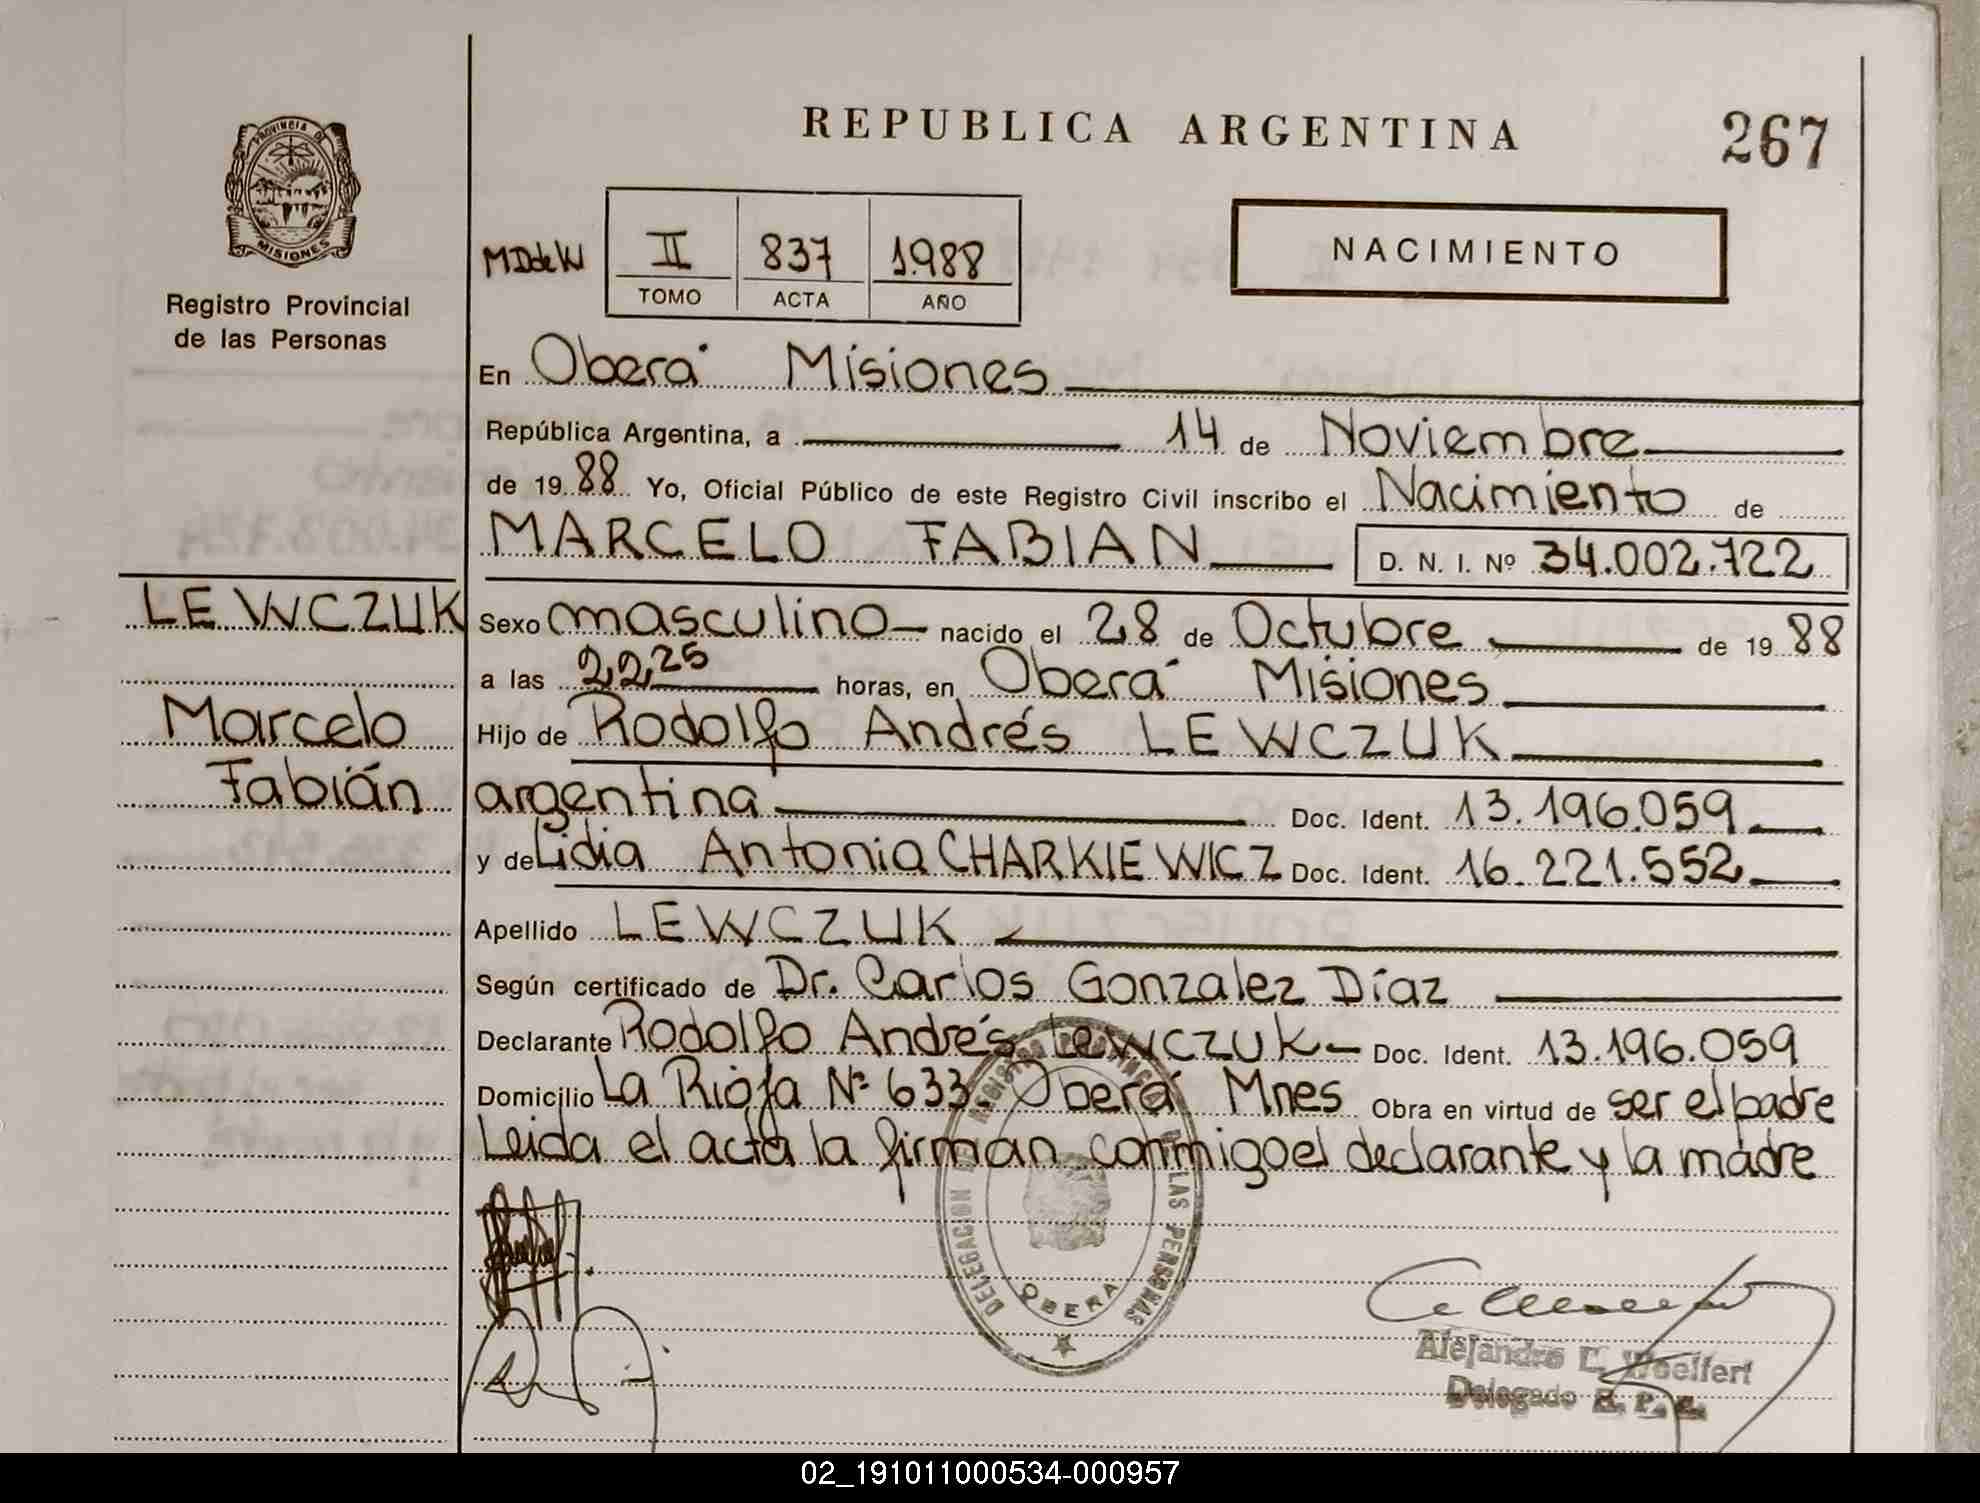 REPUBLICA ARGENTINA
267
PROVINCIA DE
MISIONES
Registro Provincial
de las Personas
MDdeW
II 837 1.988
TOMO ACTA AÑO
NACIMIENTO
En Oberá Misiones
República Argentina, a 14 de Noviembre
de 19 88 Yo, Oficial Público de este Registro Civil inscribo el Nacimiento de
MARCELO FABIAN D. N. I. Nº 34.002.722
LEWCZUK
Marcelo
Fabián
Sexo masculino nacido el 28 de Octubre de 19 88
a las 22,25 horas, en Oberá Misiones
Hijo de Rodolfo Andrés LEWCZUK
argentina Doc. Ident. 13.196.059
y de Lidia Antonia CHARKIEWICZ Doc. Ident. 16.221.552
Apellido LEWCZUK
Según certificado de Dr. Carlos Gonzalez Díaz
Declarante Rodolfo Andrés Lewczuk Doc. Ident. 13.196.059
Domicilio La Rioja Nº 633. Oberá Mnes Obra en virtud de ser el padre
Leida el acta la firman conmigo el declarante y la madre
DELEGACION REGISTRO PROVINCIAL DE LAS PERSONAS
OBERA
Alejandro Woelfert
Delegado R. P.
02_191011000534-000957